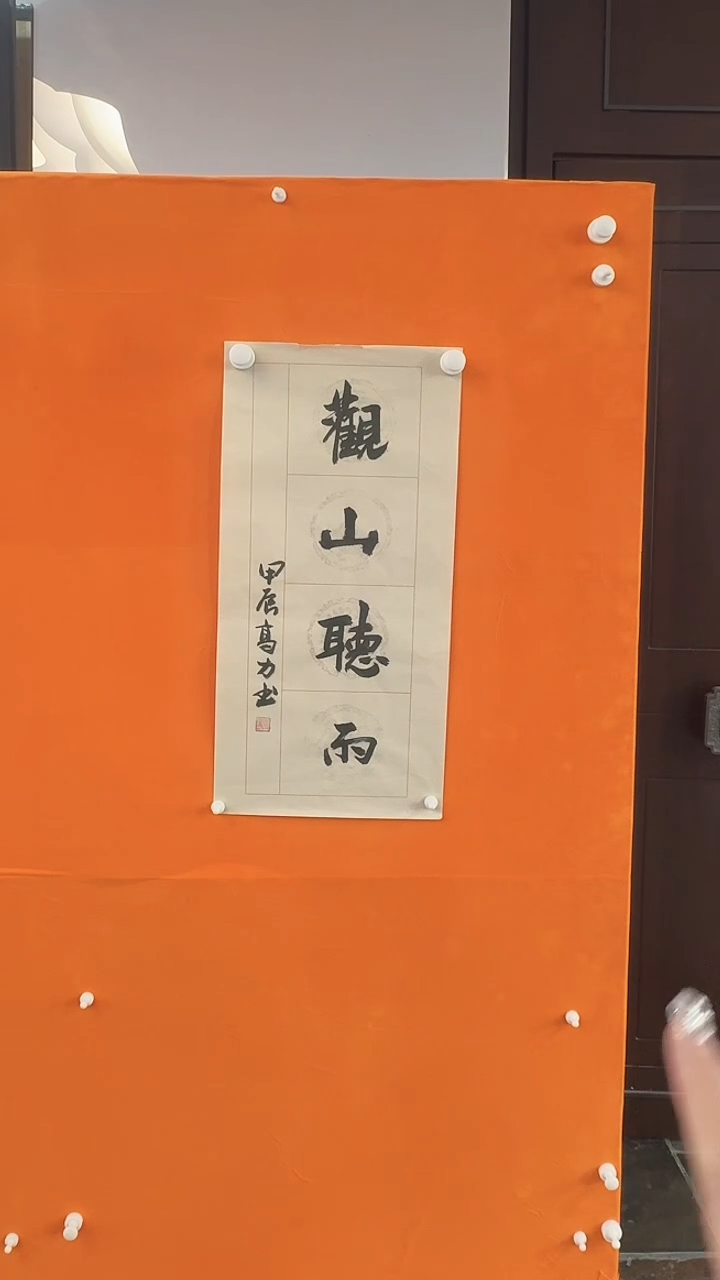 觀山聽雨
甲辰高力书